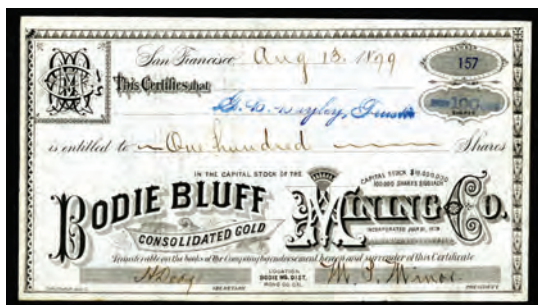 San Francisco Aug 13. 1899
NUMBER
157
This Certifies that
100
SHARES
is entitled to One hundred Shares
IN THE CAPITAL STOCK OF THE
CAPITAL STOCK $10,000,000
100,000 SHARES $100 EACH
BODIE BLUFF
CONSOLIDATED GOLD
MINING CO.
INCORPORATED
Transferable on the books of the Company by endorsement hereon and surrender of this Certificate
LOCATION
BODIE MG. DIST.
MONO CO. CAL.
M. S. Minor
SECRETARY
PRESIDENT